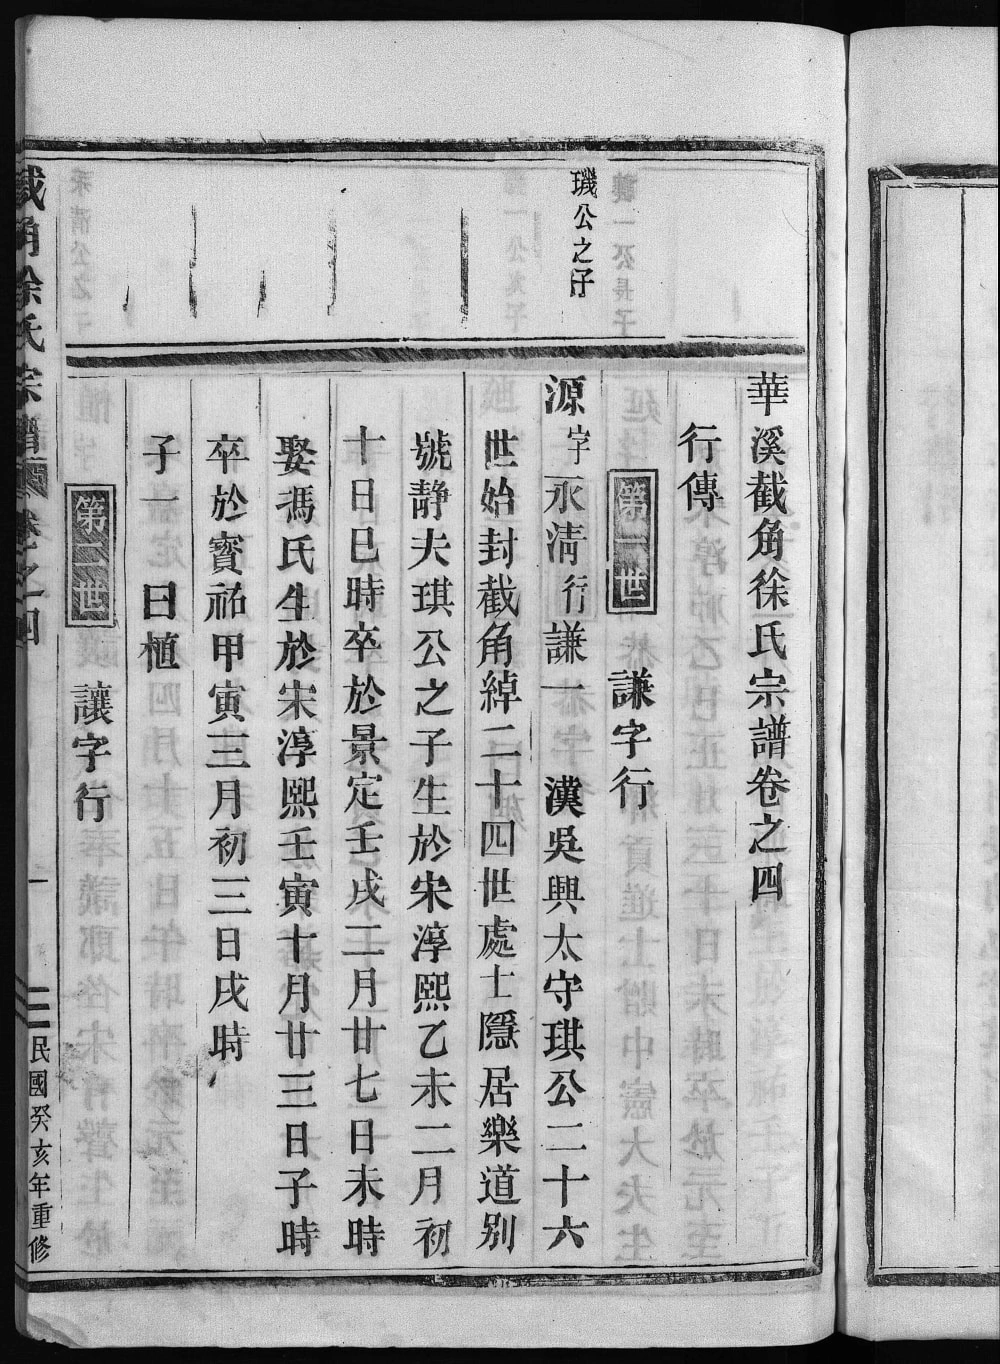 華溪截角徐氏宗譜卷之四
行傳
第一世 謙字行
璣公之仔
源 字永清行謙一 漢吳興太守琪公二十六
世始封截角綽二十四世處士隱居樂道別
號靜夫琪公之子生於宋淳熙乙未二月初
十日巳時卒於景定壬戌二月廿七日未時
娶馮氏生於宋淳熙壬寅十月廿三日子時
卒於寶祐甲寅三月初三日戌時
子一 曰植
第二世 讓字行
截角徐氏宗譜 卷之四 一 民國癸亥年重修